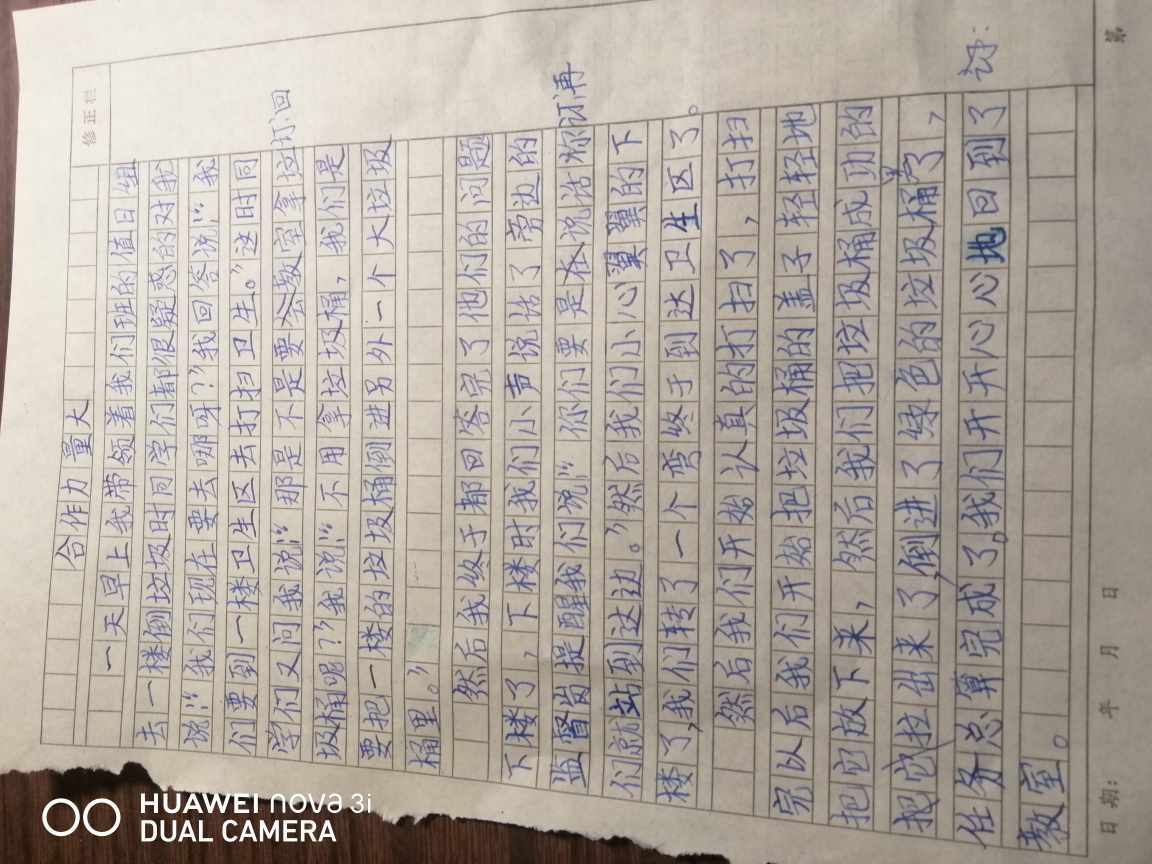 修正栏
合作力量大
一天早上我带领着我们班的值日组
去一楼倒垃圾时同学们都很疑惑的对我
说:“我们现在要去哪呀?”我回答说:“我
们要到一楼卫生区去打扫卫生。”这时同
学们又问我说:“那是不是要去教室拿垃 订:回
圾桶呢?”我说:“不用拿垃圾桶,我们是
要把一楼的垃圾桶倒进另外一个大垃圾
桶里。”
然后我终于都回答完了他们的问题
下楼了,下楼时我们小声说话了旁边的
监督岗提醒我们说:“你们要是在说话你 订:再
们就站到这边。”然后我们小心翼翼的下
楼了,我们转了一个弯终于到达卫生区了。
然后我们开始认真的打扫了,打扫
完以后我们开始把垃圾桶的盖子轻轻地
把它放下来,然后我们把垃圾桶成功的
把它拉出来了倒进了绿色的垃圾桶了,
任务总算完成了。我们开开心心地回到了 订:
教室。
日期: 年 月 日
第
HUAWEI nova 3i
DUAL CAMERA